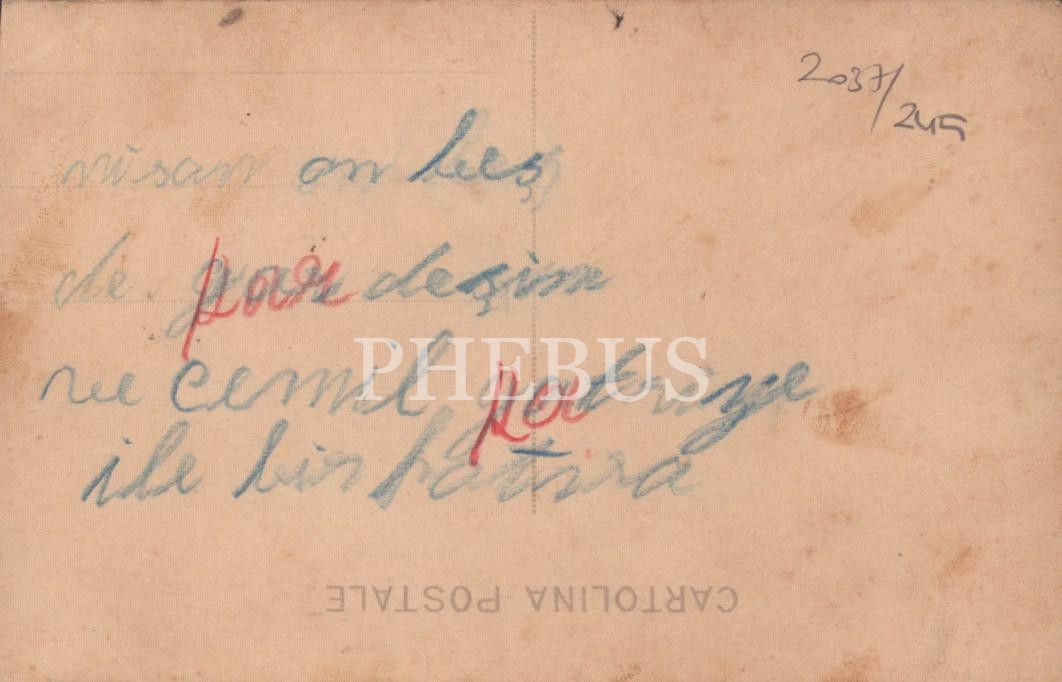 2037/245
nisan on beş
de kardeşim
ve Cemil
ile bir hatıra
PHEBUS
CARTOLINA POSTALE